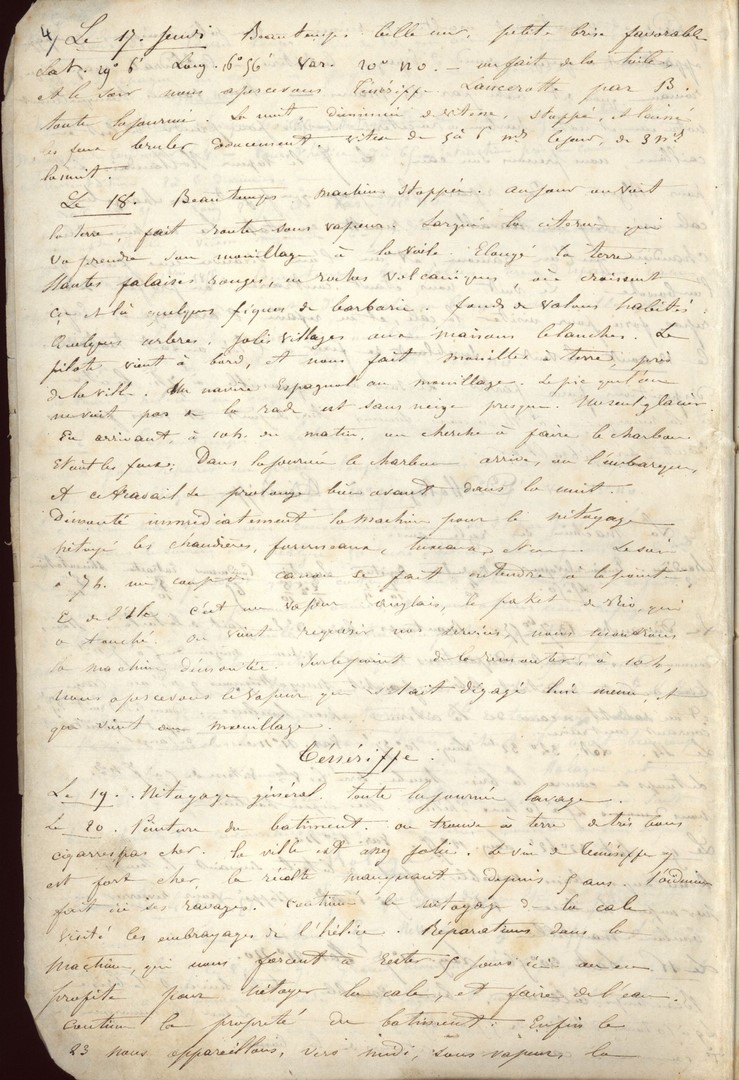 4)
Le 17. Jeudi Beau temps belle mer, petite brise favorable
Lat. 29° 6' Long. 16° 56' Var. 20° NO. — on fait de la toile
et le soir nous apercevons Ténériffe, Lancerotte par B.
toute la journée. La nuit, diminué de vitesse, stoppé, et laissé
les feux bruler doucement. Vitesse de 5 à 6 nds le jour, de 3 nds
la nuit.
Le 18. Beau temps machine stoppée. au jour on voit
la terre, fait route sous vapeur. Largué la citerne qui
va prendre son mouillage à la voile Elongé la terre
Hautes falaises rouges, en roches volcaniques, où croissent
çà et là quelques figues de barbarie. fonds de valons habités
Quelques arbres, jolis villages aux maisons blanches. Le
pilote vient à bord, et nous fait mouiller à terre, près
de la ville. Un navire Espagnol au mouillage. Le pic que l'on
ne voit pas de la rade est sans neige presque.
En arrivant, à 10h. du matin, on cherche à faire le charbon
Eteint les feux. Dans la journée le charbon arrive, on l'embarque,
et ce travail se prolonge bien avant dans la nuit.
Démonté immédiatement la machine pour le nétoyage
nétoyé les chaudières, fourneaux, tuyaux, Le soir
à 7h. un coup de canon se fait entendre à la pointe
E. de c'est un vapeur anglais, le paket de Rio, qui
a touché. On vient requérir nos services nous
la machine démontée. Sur le point de la remonter, à 10 h,
nous apercevons le vapeur qui s'était dégagé lui même, et
qui vient au mouillage.
Ténériffe.
Le 19. Nétoyage général toute la journée lavage.
Le 20. Peinture du batiment. on trouve à terre de très bons
cigarres pas cher. la ville est assez jolie. Le vin de Ténériffe y
est fort cher, la récolte manquant depuis 5 ans. l'oïdium
fait ici ses ravages. continué le nétoyage de la cale
Visité les embrayages de l'hélice. Réparations dans la
machine, qui nous forcent à rester 5 jours ici on en
profite pour nétoyer la cale, et faire de l'eau.
continué la propreté du batiment. Enfin le
23 nous appareillons, vers midi, sous vapeur, la